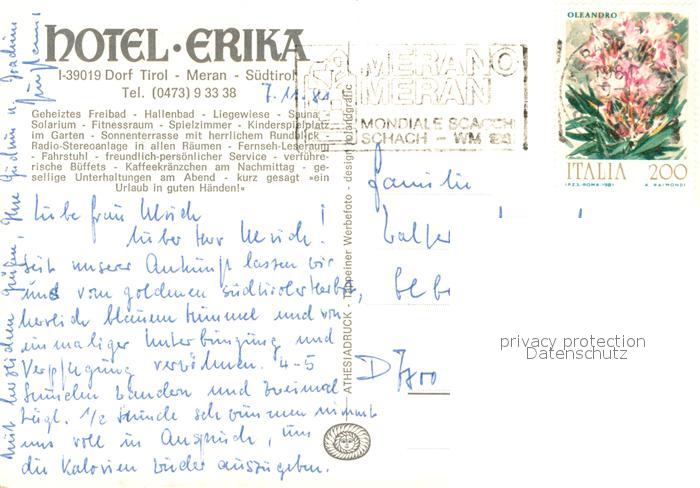 HOTEL · ERIKA
I-39019 Dorf Tirol - Meran - Südtirol
Tel. (0473) 9 33 38
7.11.81
Geheiztes Freibad - Hallenbad - Liegewiese - Sauna
Solarium - Fitnessraum - Spielzimmer - Kinderspielplatz
im Garten - Sonnenterrasse mit herrlichem Rundblick -
Radio-Stereoanlage in allen Räumen - Fernseh-Leseraum
- Fahrstuhl - freundlich-persönlicher Service - verführe-
rische Büffets - Kaffeekränzchen am Nachmittag - ge-
sellige Unterhaltungen am Abend - kurz gesagt »ein
Urlaub in guten Händen!«
Liebe Frau Ulrich
Lieber Herr Ulrich!
Seit unserer Ankunft lassen wir
uns vom goldenen Südtirolerherbst,
herrlich blauem Himmel und von
einmaliger Unterbringung und
Verpflegung verwöhnen. 4-5
Stunden wandern und zweimal
tägl. 1/2 Stunde schwimmen nimmt
uns voll in Anspruch, um
die Kalorien wieder auszugeben.
Mit herzlichen Grüßen, Ihre Gudrun u. Joachim
ATHESIADRUCK - Tappeiner Werbefoto - design
MERANO
MERAN
MONDIALE SCACCHI
SCHACH - WM '81
OLEANDRO
ITALIA 200
I.P.Z.S.-ROMA-1981 A. RAIMONDI
Familie
D 7800
privacy protection
Datenschutz